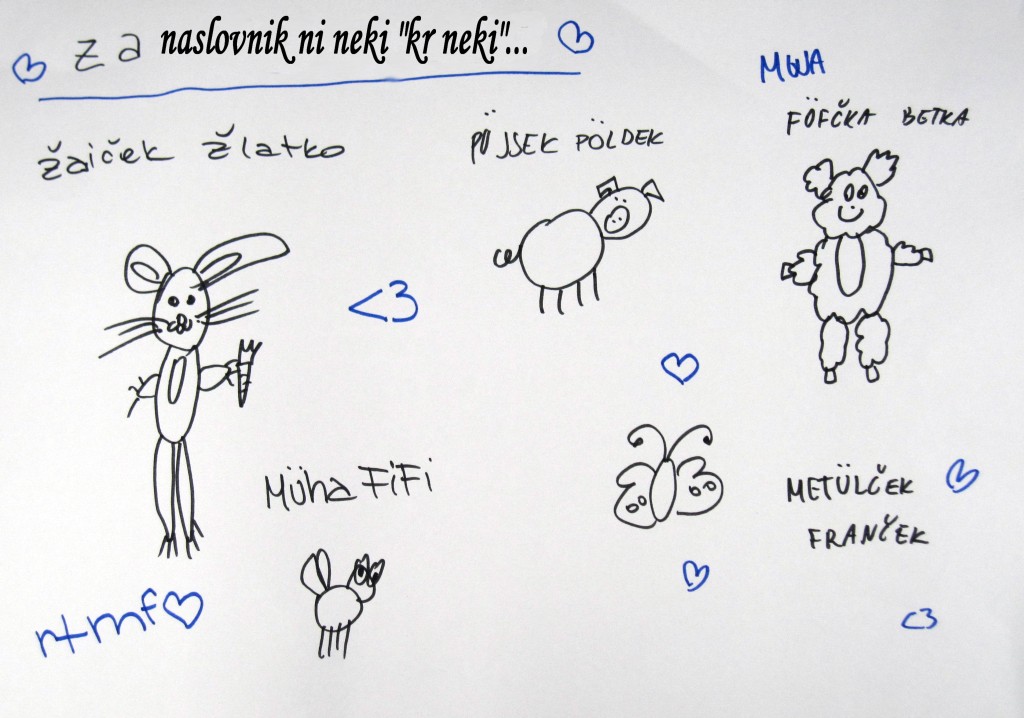 za naslovnik ni neki "kr neki"...
MWA
FÖFČKA BETKA
žaiček žlatko
PÜJSEK PÖLDEK
<3
Müha FiFi
METÜLČEK
FRANČEK
n+mf
<3